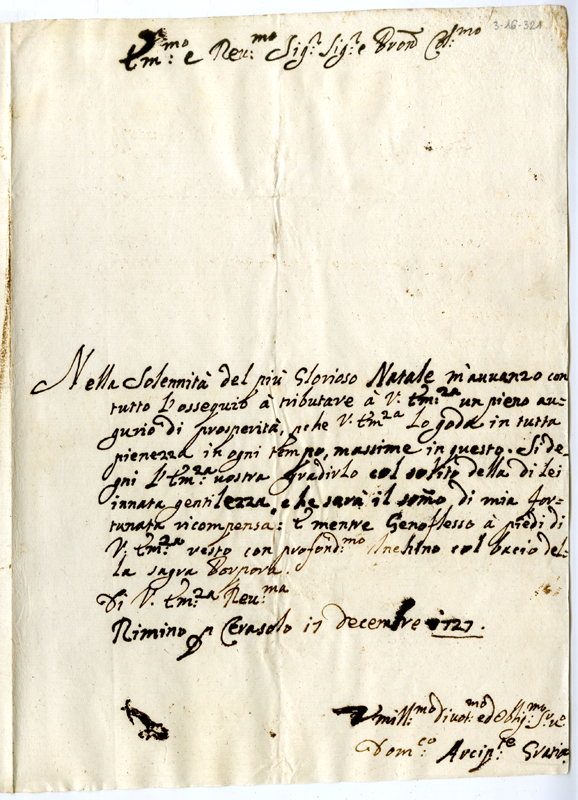 3-16-321
Em:mo e Reu:mo Sig:r Sig:r e Pron Col:mo
Nella Solennità del più Glorioso Natale m'auuanzo con
tutto l'ossequio à tributare à V: Em:za un pieno au-
gurio di prosperità, pche V: Em:za lo goda in tutta
pienezza in ogni tempo, massime in questo. Si de-
gni l'Em:za uostra gradirlo col solito della di lei
innata gentilezza, che sarà il sommo di mia for-
tunata ricompensa: E mentre Genoflesso à piedi di
V: Em:za resto con profond:mo Inchino col bacio del-
la sagra Porpora.
Di V: Em:za Reu:ma
Rimino p Cerasolo 17 decembre 1727.
Vmill:mo diuot:mo ed Oblig:mo Se:re
Dom:co Arcip:te